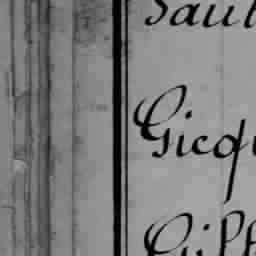 Saul
Gicq
Gilb